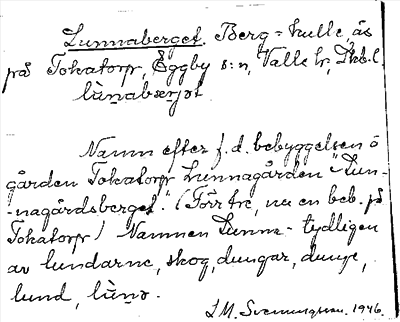 Lunnaberget. Berg-kulle, ås
på Tokatorp, Eggby s:n, Valle hr, Skb.l.
lùnabærjət
Namn efter f. d. bebyggelsen å
gården Tokatorp Lunnagården "Lun-
-nagårdsberget." (Förr tre, nu en beb. på
Tokatorp) Namnen Lunna- tydligen
av lundarne, skog, dungar, dunge,
lund, lùnd.
J.M. 1946.